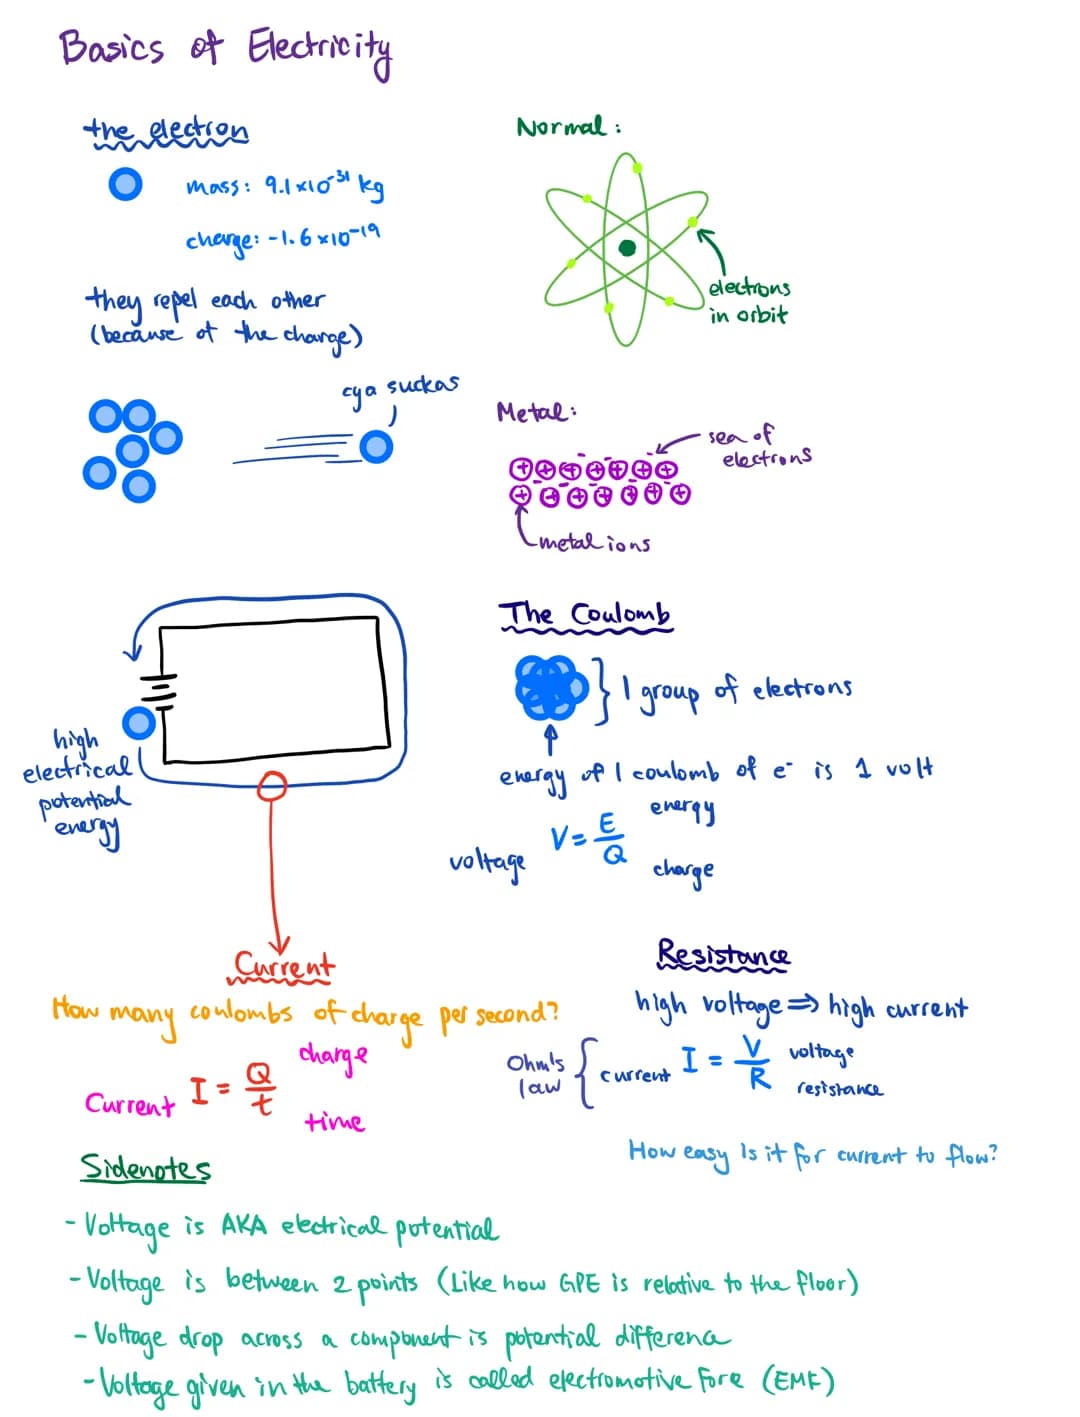 Basics of Electricity
the electron
mass: 9.1×10⁻³¹ kg
charge: -1.6×10⁻¹⁹
they repel each other
(because of the charge)
cya suckas
Normal:
electrons
in orbit
Metal:
sea of
electrons
metal ions
high
electrical
potential
energy
The Coulomb
} 1 group of electrons
energy of 1 coulomb of e⁻ is 1 volt
voltage V = E/Q energy charge
Current
How many coulombs of charge per second?
Current I = Q/t charge time
Resistance
high voltage ⇒ high current
Ohm's
law { current I = V/R voltage resistance
How easy is it for current to flow?
Sidenotes
- Voltage is AKA electrical potential
- Voltage is between 2 points (Like how GPE is relative to the floor)
- Voltage drop across a component is potential differenc
- Voltage given in the battery is called electromotive Force (EMF)